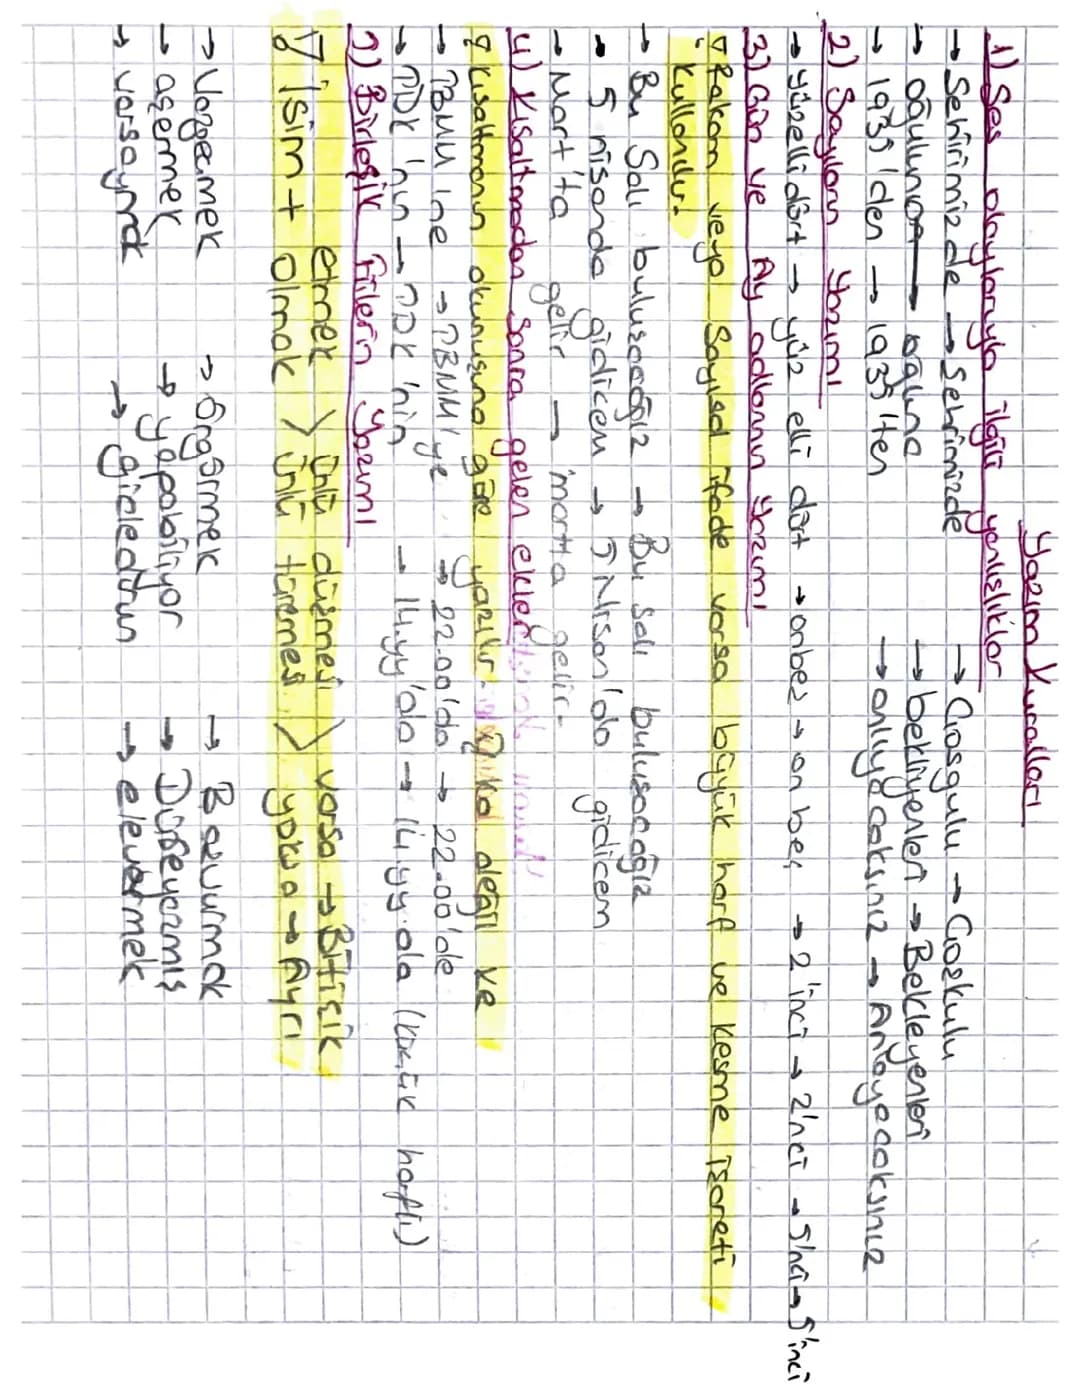 Yazım Kuralları
1) Ses olaylarıyla ilgili yanlışlıklar
→ Şehirimizde → Şehrimizde → Coşgulu → Coşkulu
→ oğuluna → oğluna → bekliyenleri → Bekleyenleri
→ 1935'den → 1935'ten → anlıyacaksınız → Anlayacaksınız
2) Sayıların Yazımı
→ yüzellidört → yüz elli dört → onbeş → on beş → 2'inci → 2'nci → 5'nci → 5'inci
3) Gün ve Ay adlarının yazımı
Rakam veya Sayısal ifade varsa büyük harf ve kesme işareti
kullanılır.
→ Bu Salı buluşacağız → Bu salı buluşacağız
→ 5 nisanda gidicem → 5 Nisan'da gidicem
→ Mart'ta gelir → martta gelir.
4) Kısaltmadan Sonra gelen ekler
Kısaltmanın okunuşuna göre yazılır. değil ke
→ TBMM'ine → TBMM'ye → 22.00'da → 22.00'de
→ TDK'nın → TDK'nin → 14.yy'da → 14.yyda (küçük harfli)
Birleşik Fiilerin Yazımı
İsim + etmek olmak > ünlü düşmesi ünlü türemesi > varsa → Bitişik yoksa → Ayrı
→ Vazgeçmek → öngörmek → Başvurmak
→ aşermek → yapabiliyor → Düşeyazmış
→ varsaymak → gidedurun → elevermek